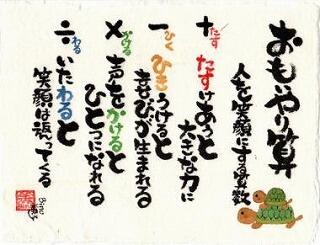 おもいやり算
人を笑顔にする算数
＋たす
たすけあうと
大きな力に
−ひく
ひきうけると
喜びが生まれる
×かける
声をかけると
ひとつになれる
÷わる
いたわると
笑顔は返ってくる